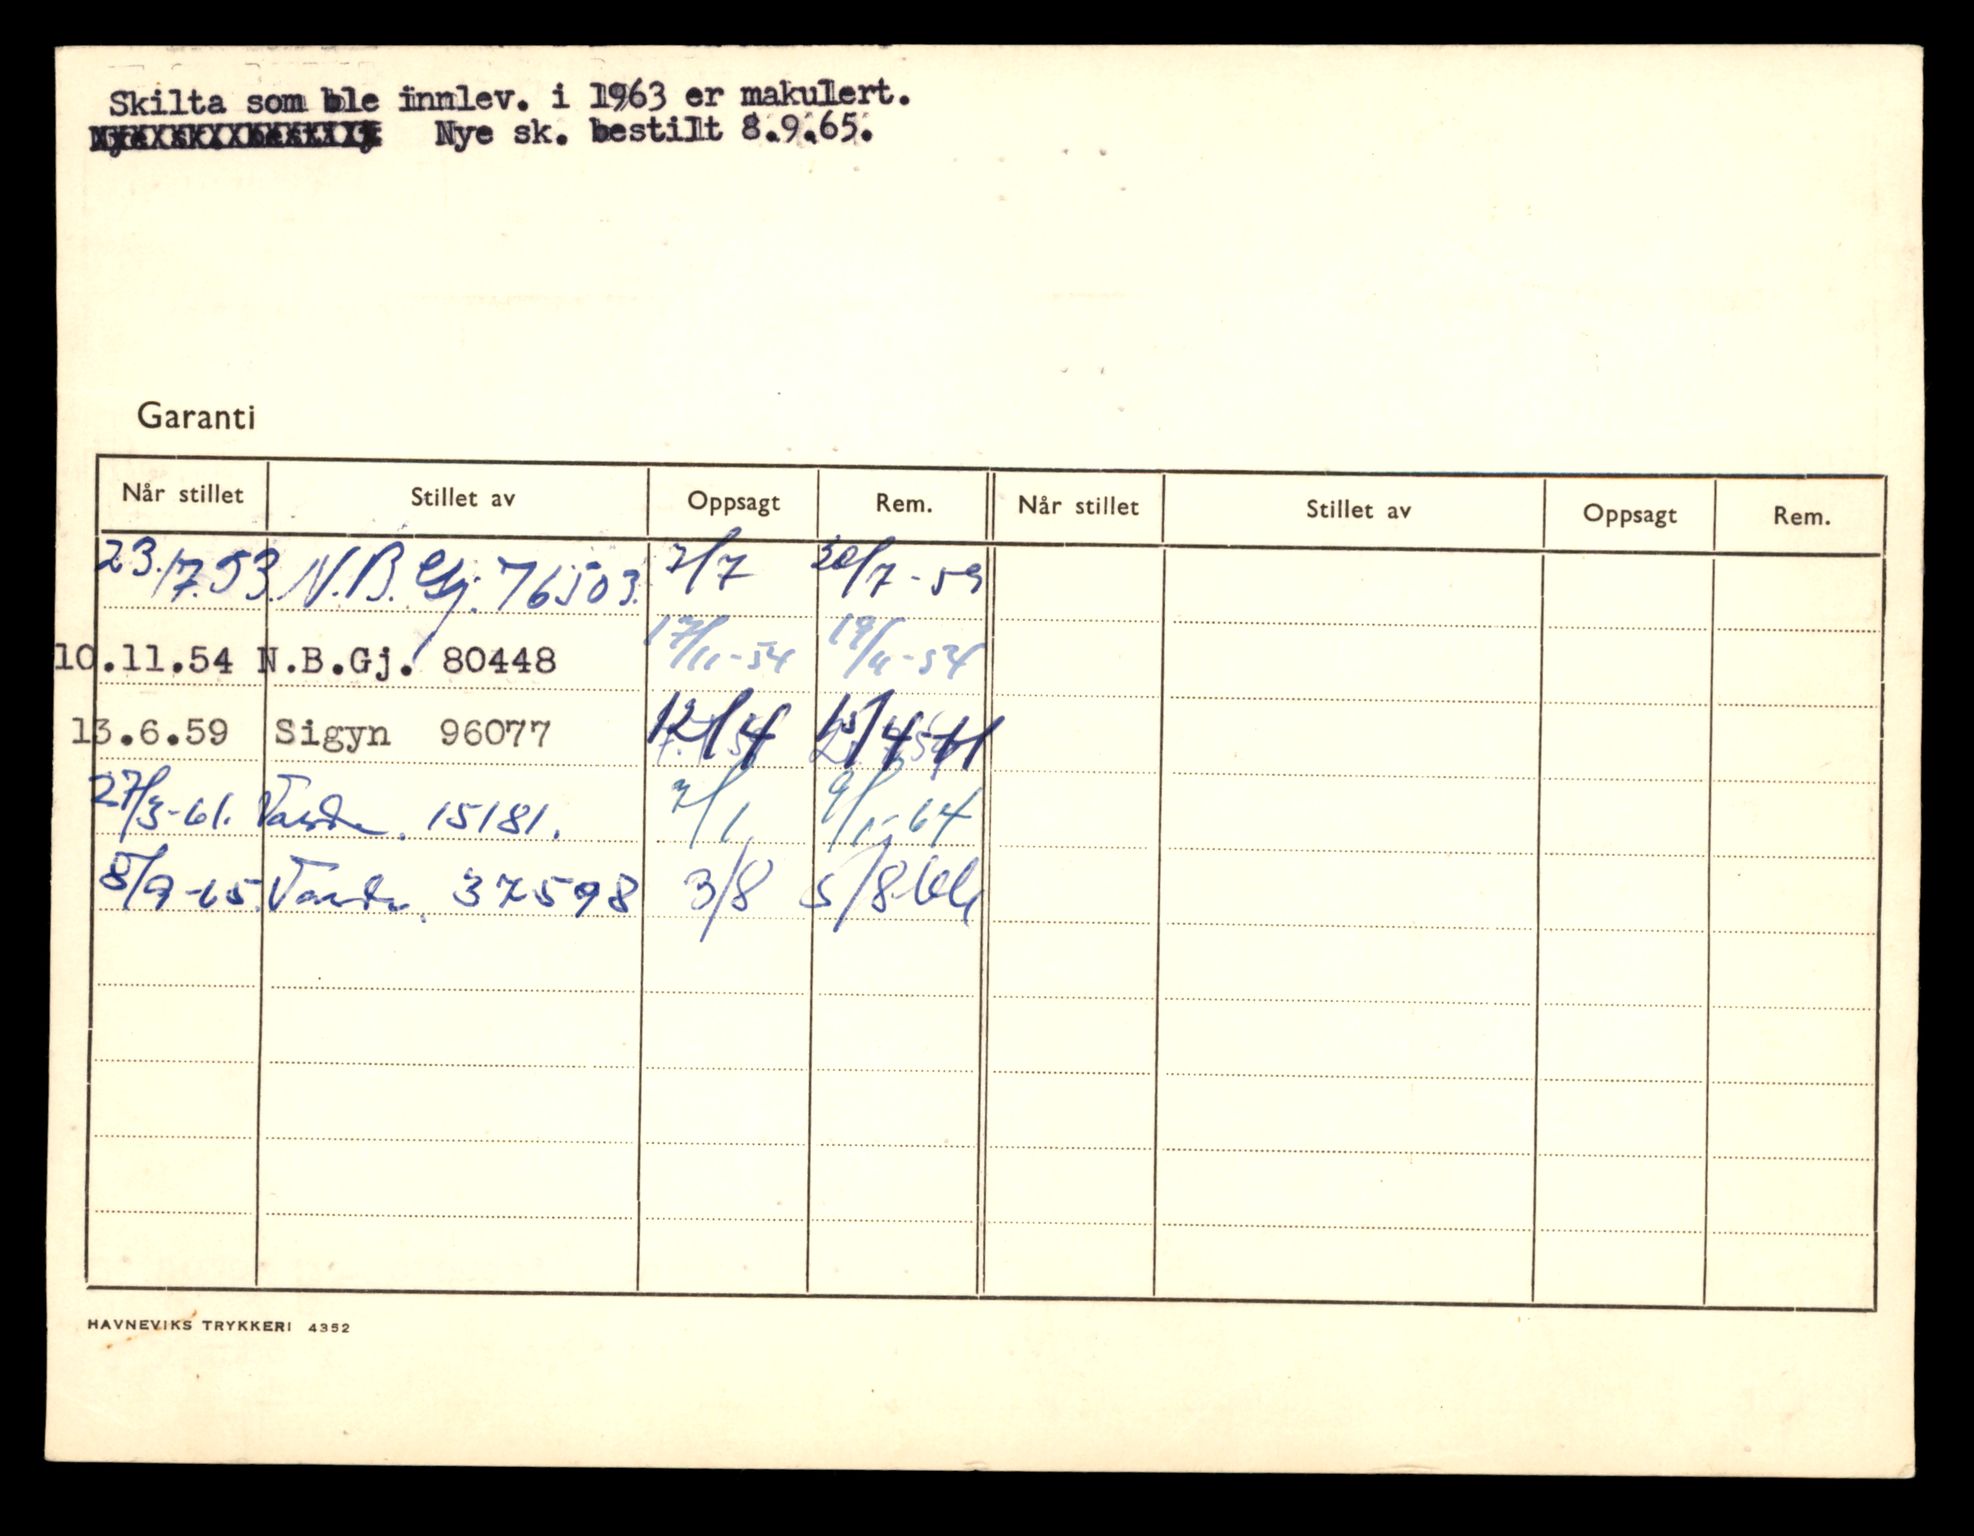 Skilta som ble innlev. i 1963 er makulert.
Nye sk. bestilt 8.9.65.
Garanti
Når stillet Stillet av Oppsagt Rem. Når stillet Stillet av Oppsagt Rem.
23./7.53. N.B. Gj. 76503. 7/7 20/7-59
10.11.54 N.B.Gj. 80448 17/11-54 19/11-54
13.6.59 Sigyn 96077 12/4 15/4-61
27/3-61. 15181. 7/1 9/1-64
8/9-65. 37598 3/8 5/8-66
HAVNEVIKS TRYKKERI 4352